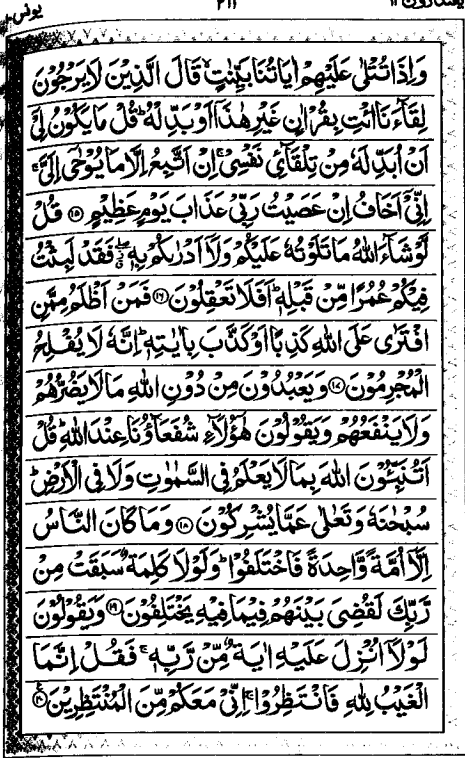 يعتذرون ١١ ٢١١ يونس ١٠
وَاِذَا تُتْلٰى عَلَيْهِمْ اٰيَاتُنَا بَيِّنٰتٍ ۙ قَالَ الَّذِيْنَ لَا يَرْجُوْنَ
لِقَآءَنَا ائْتِ بِقُرْاٰنٍ غَيْرِ هٰذَآ اَوْ بَدِّلْهُ ؕ قُلْ مَا يَكُوْنُ لِيْٓ
اَنْ اُبَدِّلَهٗ مِنْ تِلْقَآئِ نَفْسِيْ ۚ اِنْ اَتَّبِعُ اِلَّا مَا يُوْحٰٓى اِلَيَّ ۚ
اِنِّيْٓ اَخَافُ اِنْ عَصَيْتُ رَبِّيْ عَذَابَ يَوْمٍ عَظِيْمٍ ﴿۱۵﴾ قُلْ
لَّوْ شَآءَ اللّٰهُ مَا تَلَوْتُهٗ عَلَيْكُمْ وَلَآ اَدْرٰىكُمْ بِهٖ ۖ فَقَدْ لَبِثْتُ
فِيْكُمْ عُمُرًا مِّنْ قَبْلِهٖ ؕ اَفَلَا تَعْقِلُوْنَ ﴿۱۶﴾ فَمَنْ اَظْلَمُ مِمَّنِ
افْتَرٰى عَلَى اللّٰهِ كَذِبًا اَوْ كَذَّبَ بِاٰيٰتِهٖ ؕ اِنَّهٗ لَا يُفْلِحُ
الْمُجْرِمُوْنَ ﴿۱۷﴾ وَيَعْبُدُوْنَ مِنْ دُوْنِ اللّٰهِ مَا لَا يَضُرُّهُمْ
وَلَا يَنْفَعُهُمْ وَيَقُوْلُوْنَ هٰٓؤُلَآءِ شُفَعَآؤُنَا عِنْدَ اللّٰهِ ؕ قُلْ
اَتُنَبِّئُوْنَ اللّٰهَ بِمَا لَا يَعْلَمُ فِي السَّمٰوٰتِ وَلَا فِي الْاَرْضِ ؕ
سُبْحٰنَهٗ وَتَعٰلٰى عَمَّا يُشْرِكُوْنَ ﴿۱۸﴾ وَمَا كَانَ النَّاسُ
اِلَّآ اُمَّةً وَّاحِدَةً فَاخْتَلَفُوْا ؕ وَلَوْلَا كَلِمَةٌ سَبَقَتْ مِنْ
رَّبِّكَ لَقُضِيَ بَيْنَهُمْ فِيْمَا فِيْهِ يَخْتَلِفُوْنَ ﴿۱۹﴾ وَيَقُوْلُوْنَ
لَوْلَآ اُنْزِلَ عَلَيْهِ اٰيَةٌ مِّنْ رَّبِّهٖ ۚ فَقُلْ اِنَّمَا
الْغَيْبُ لِلّٰهِ فَانْتَظِرُوْا ۚ اِنِّيْ مَعَكُمْ مِّنَ الْمُنْتَظِرِيْنَ ﴿۲۰﴾